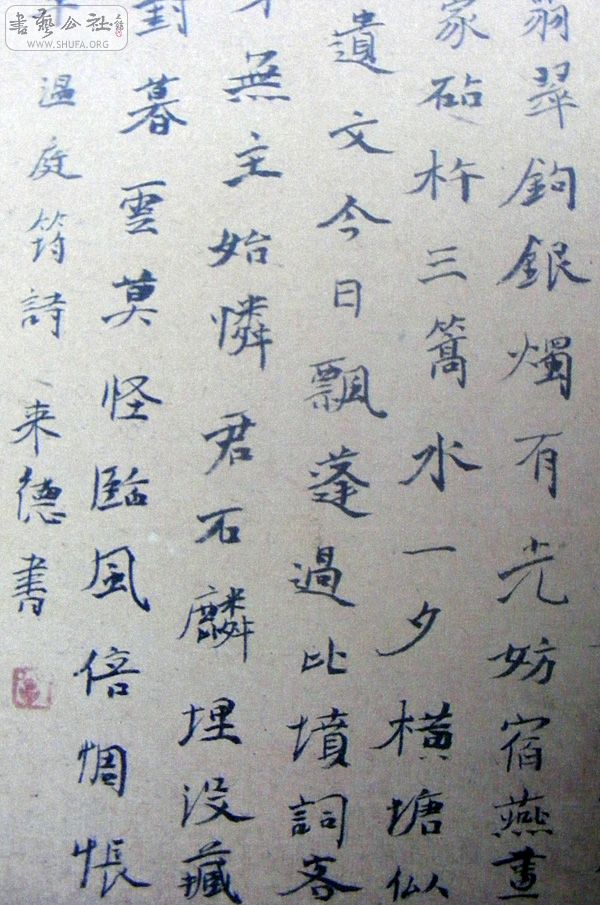 翠鉤銀燭有光妨宿燕畫
家砧杵三篙水一夕橫塘似
遺文今日飄蓬過此墳詞客
無主始憐君石麟埋沒藏
對暮雲莫怪臨風倍惆悵
溫庭筠詩 来德書
書藝公社
WWW.SHUFA.ORG